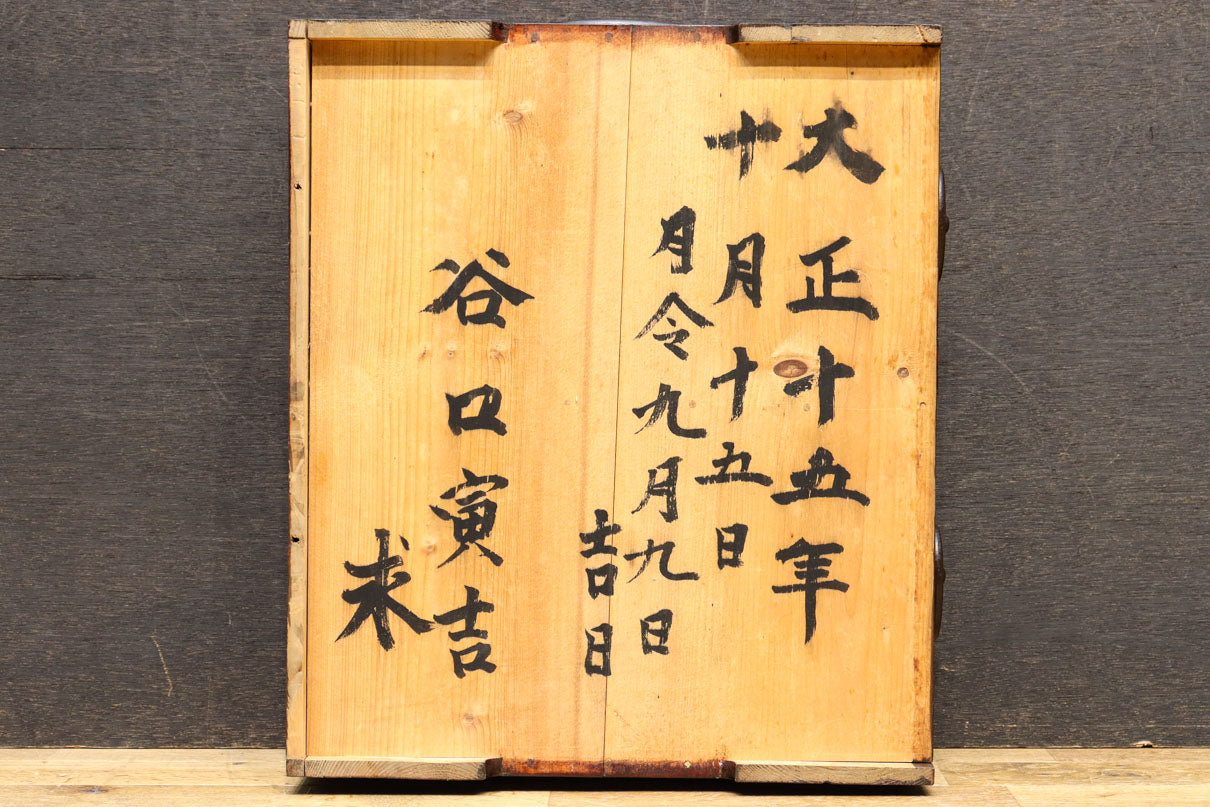 大正十五年
十月十五日
月令九月九日
吉日
谷口寅吉
求